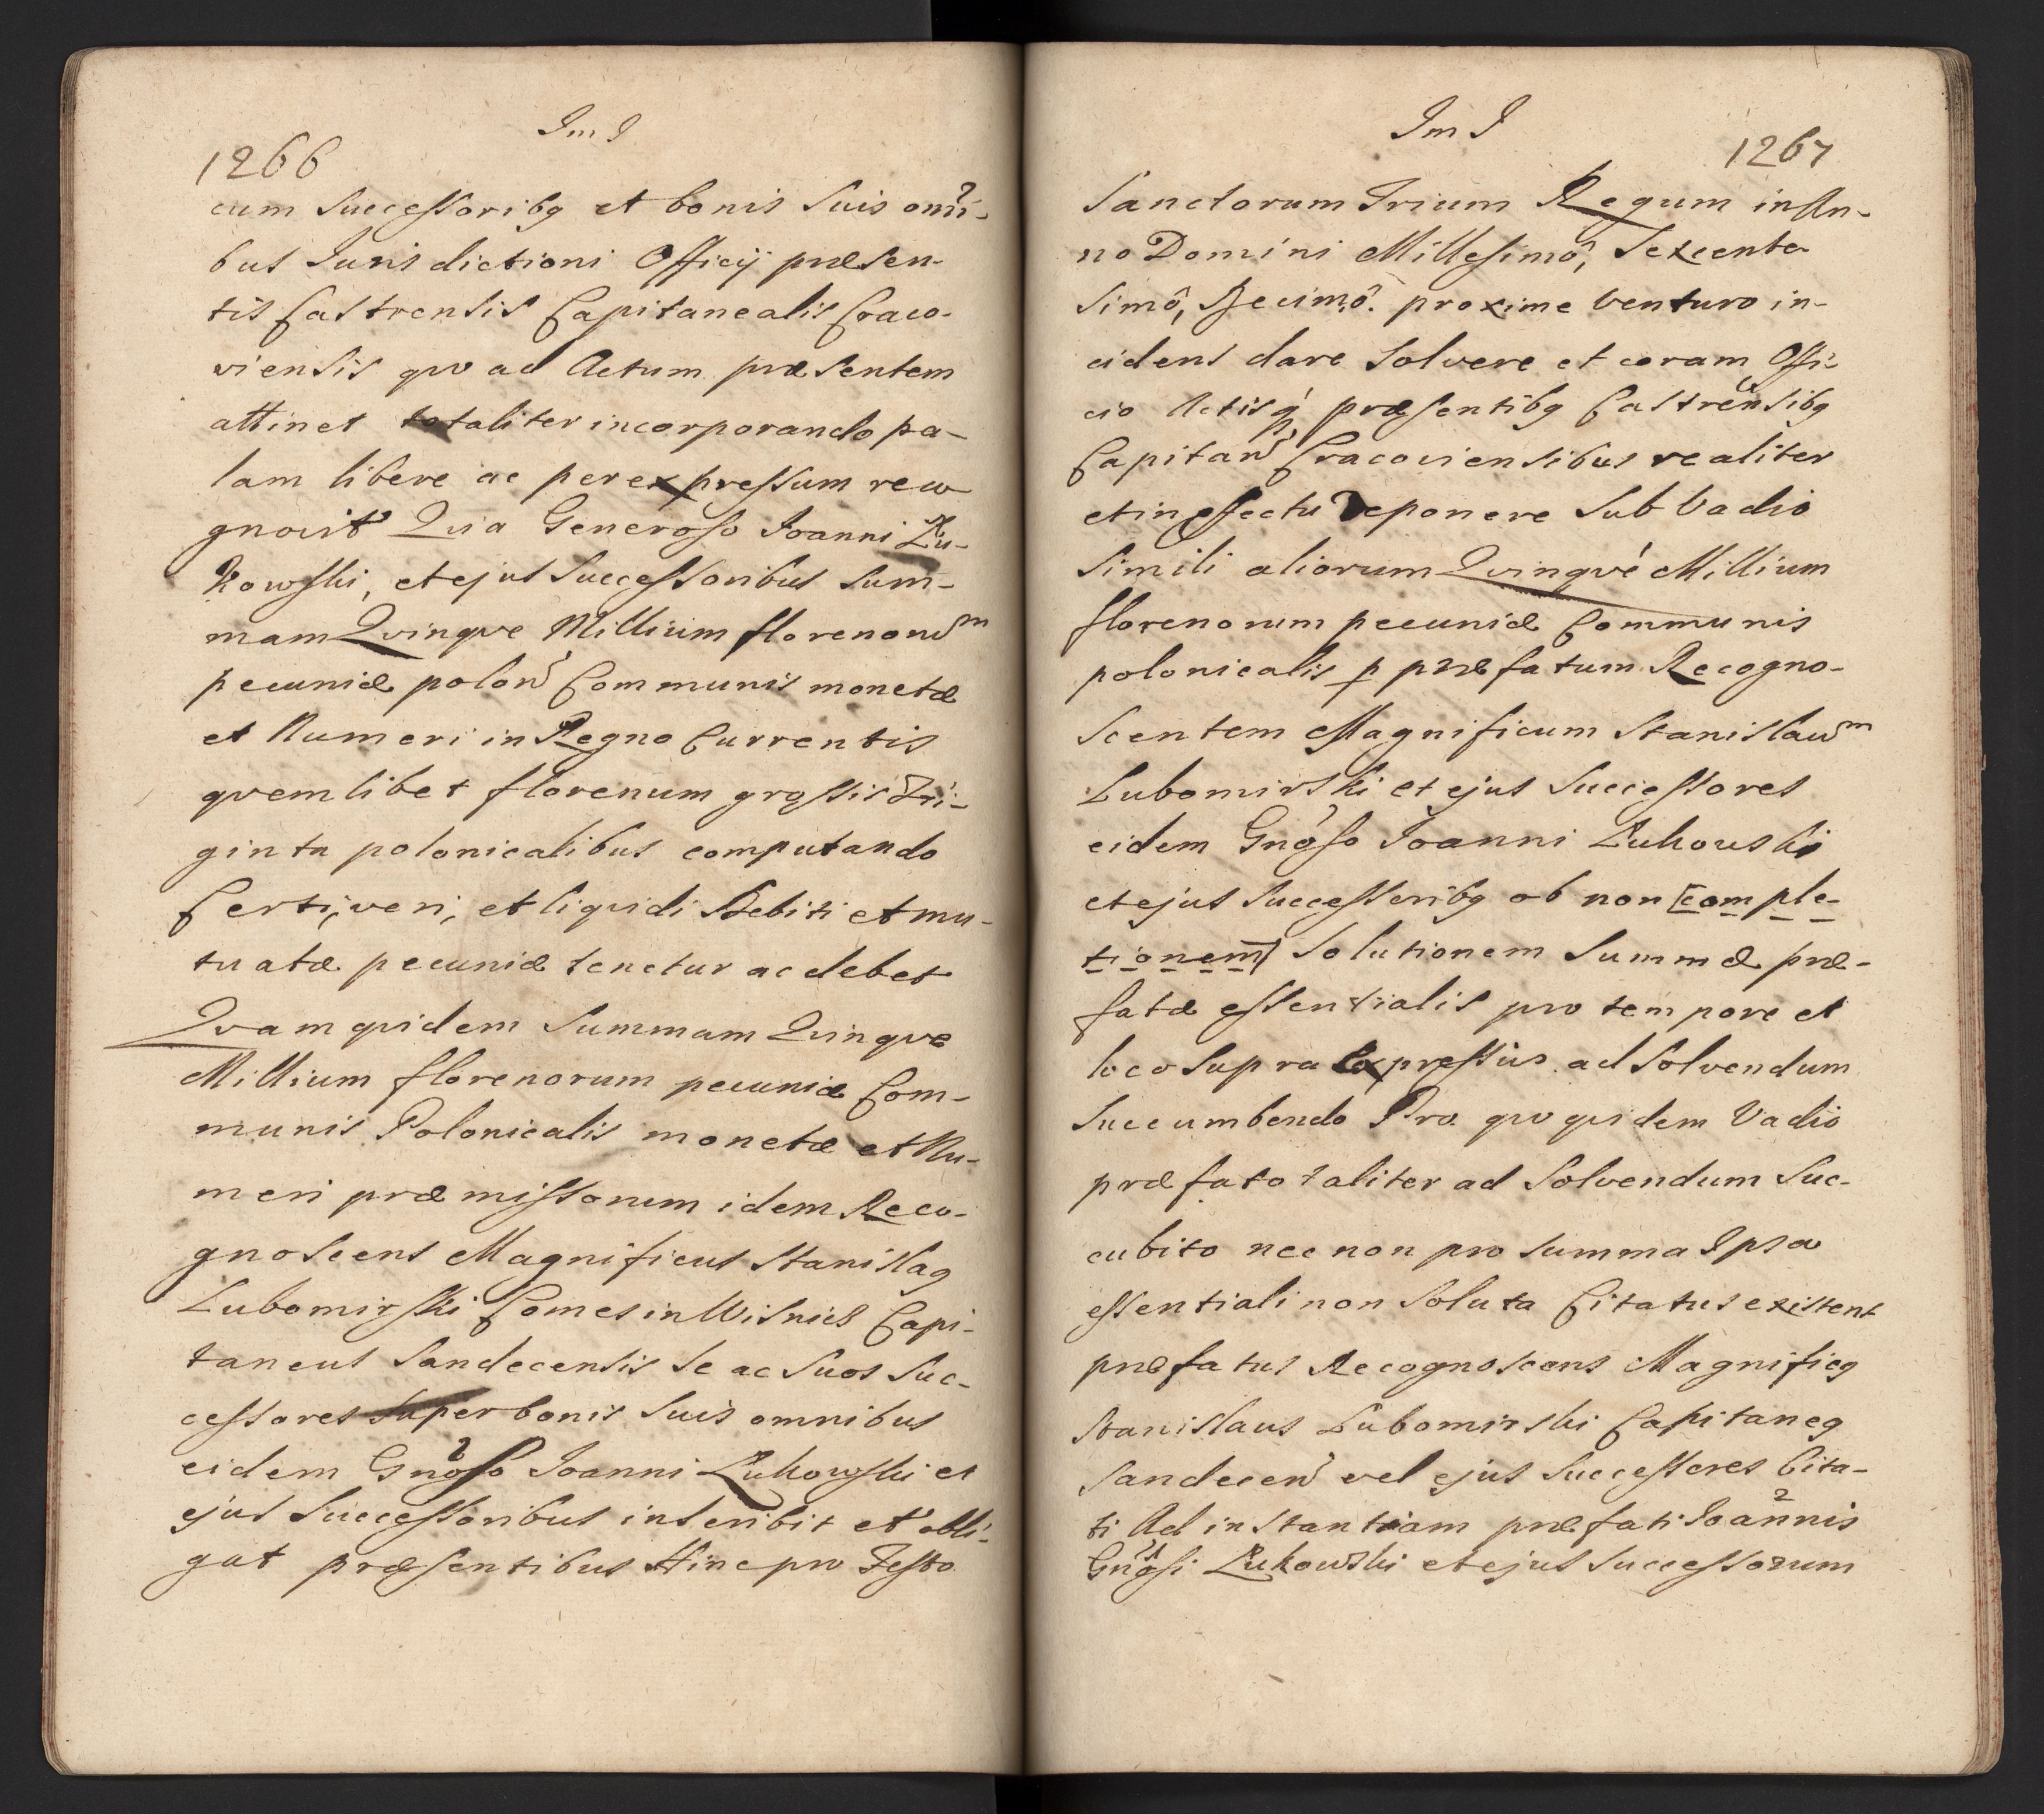 Im J
1266
cum Successoribg et bonis Suis omi-
bus Jurisdictioni Officij præsen-
tis Castrensis Capitanealis Craco-
viensis qvo ad Actum præsentem
attinet totaliter incorporando pa-
lam libere ac per expressum reco
gnovit Qvia Generoso Joanni Zu-
kowski, et ejus Successoribus Sum-
mam Qvinqve Millium florenorum
pecuniæ polon Communis monetæ
et Numeri in Regno Currentis
qvemlibet florenum grossis Tri-
ginta polonicalibus computando
Certi, veri, et liqvidi Debiti et mu-
tuatæ pecuniæ tenetur ac debet
Qvam qvidem Summam Qvinqve
Millium florenorum pecuniæ Com-
munis Polonicalis monetæ et Nu-
meri præmissorum idem Reco-
gnoscens Magnificus Stanislag
Lubomirski Comes in Wisnicz Capi-
taneus Sandecensis Se ac Suos Suc-
cessores Super bonis Suis omnibus
eidem Gnoso Joanni Zukowski et
ejus Successoribus inscribit et obli-
gat præsentibus Hinc pro Festo
Im J
1267
Sanctorum Trium Regum in An-
no Domini Millesimô, Sexcente
Simô, Decimô. proxime Venturo in-
cidens dare Solvere et coram Offi-
cio Actisq præsentibg Castrensibg
Capitan Cracoviensibus realiter
et in effectu Deponere Sub Vadio
Simili aliorum Qvinqvé Millium
florenorum pecuniæ Communis
polonicalis p præfatum Recogno-
Scentem Magnificum Stanislaum
Lubomirski et ejus Successores
eidem Gnoso Joanni Zukowski
et ejus Successoribg ob non [comple-
tionem] Solutionem Summæ præ-
fatæ essentialis pro tempore et
loco Supra Expressius ad Solvendum
Succumbendo Pro qvo qvidem Vadio
præfato taliter ad Solvendum Suc-
cubito nec non pro Summa Ipsa
essentiali non Soluta Citatus existent
præfatus Recognoscens Magnificg
Stanislaus Lubomirski Capitaneg
Sandecen vel ejus Successores Cita-
ti Ad instantiam præfati Joannis
Gnosi Zukowski et ejus Successorum